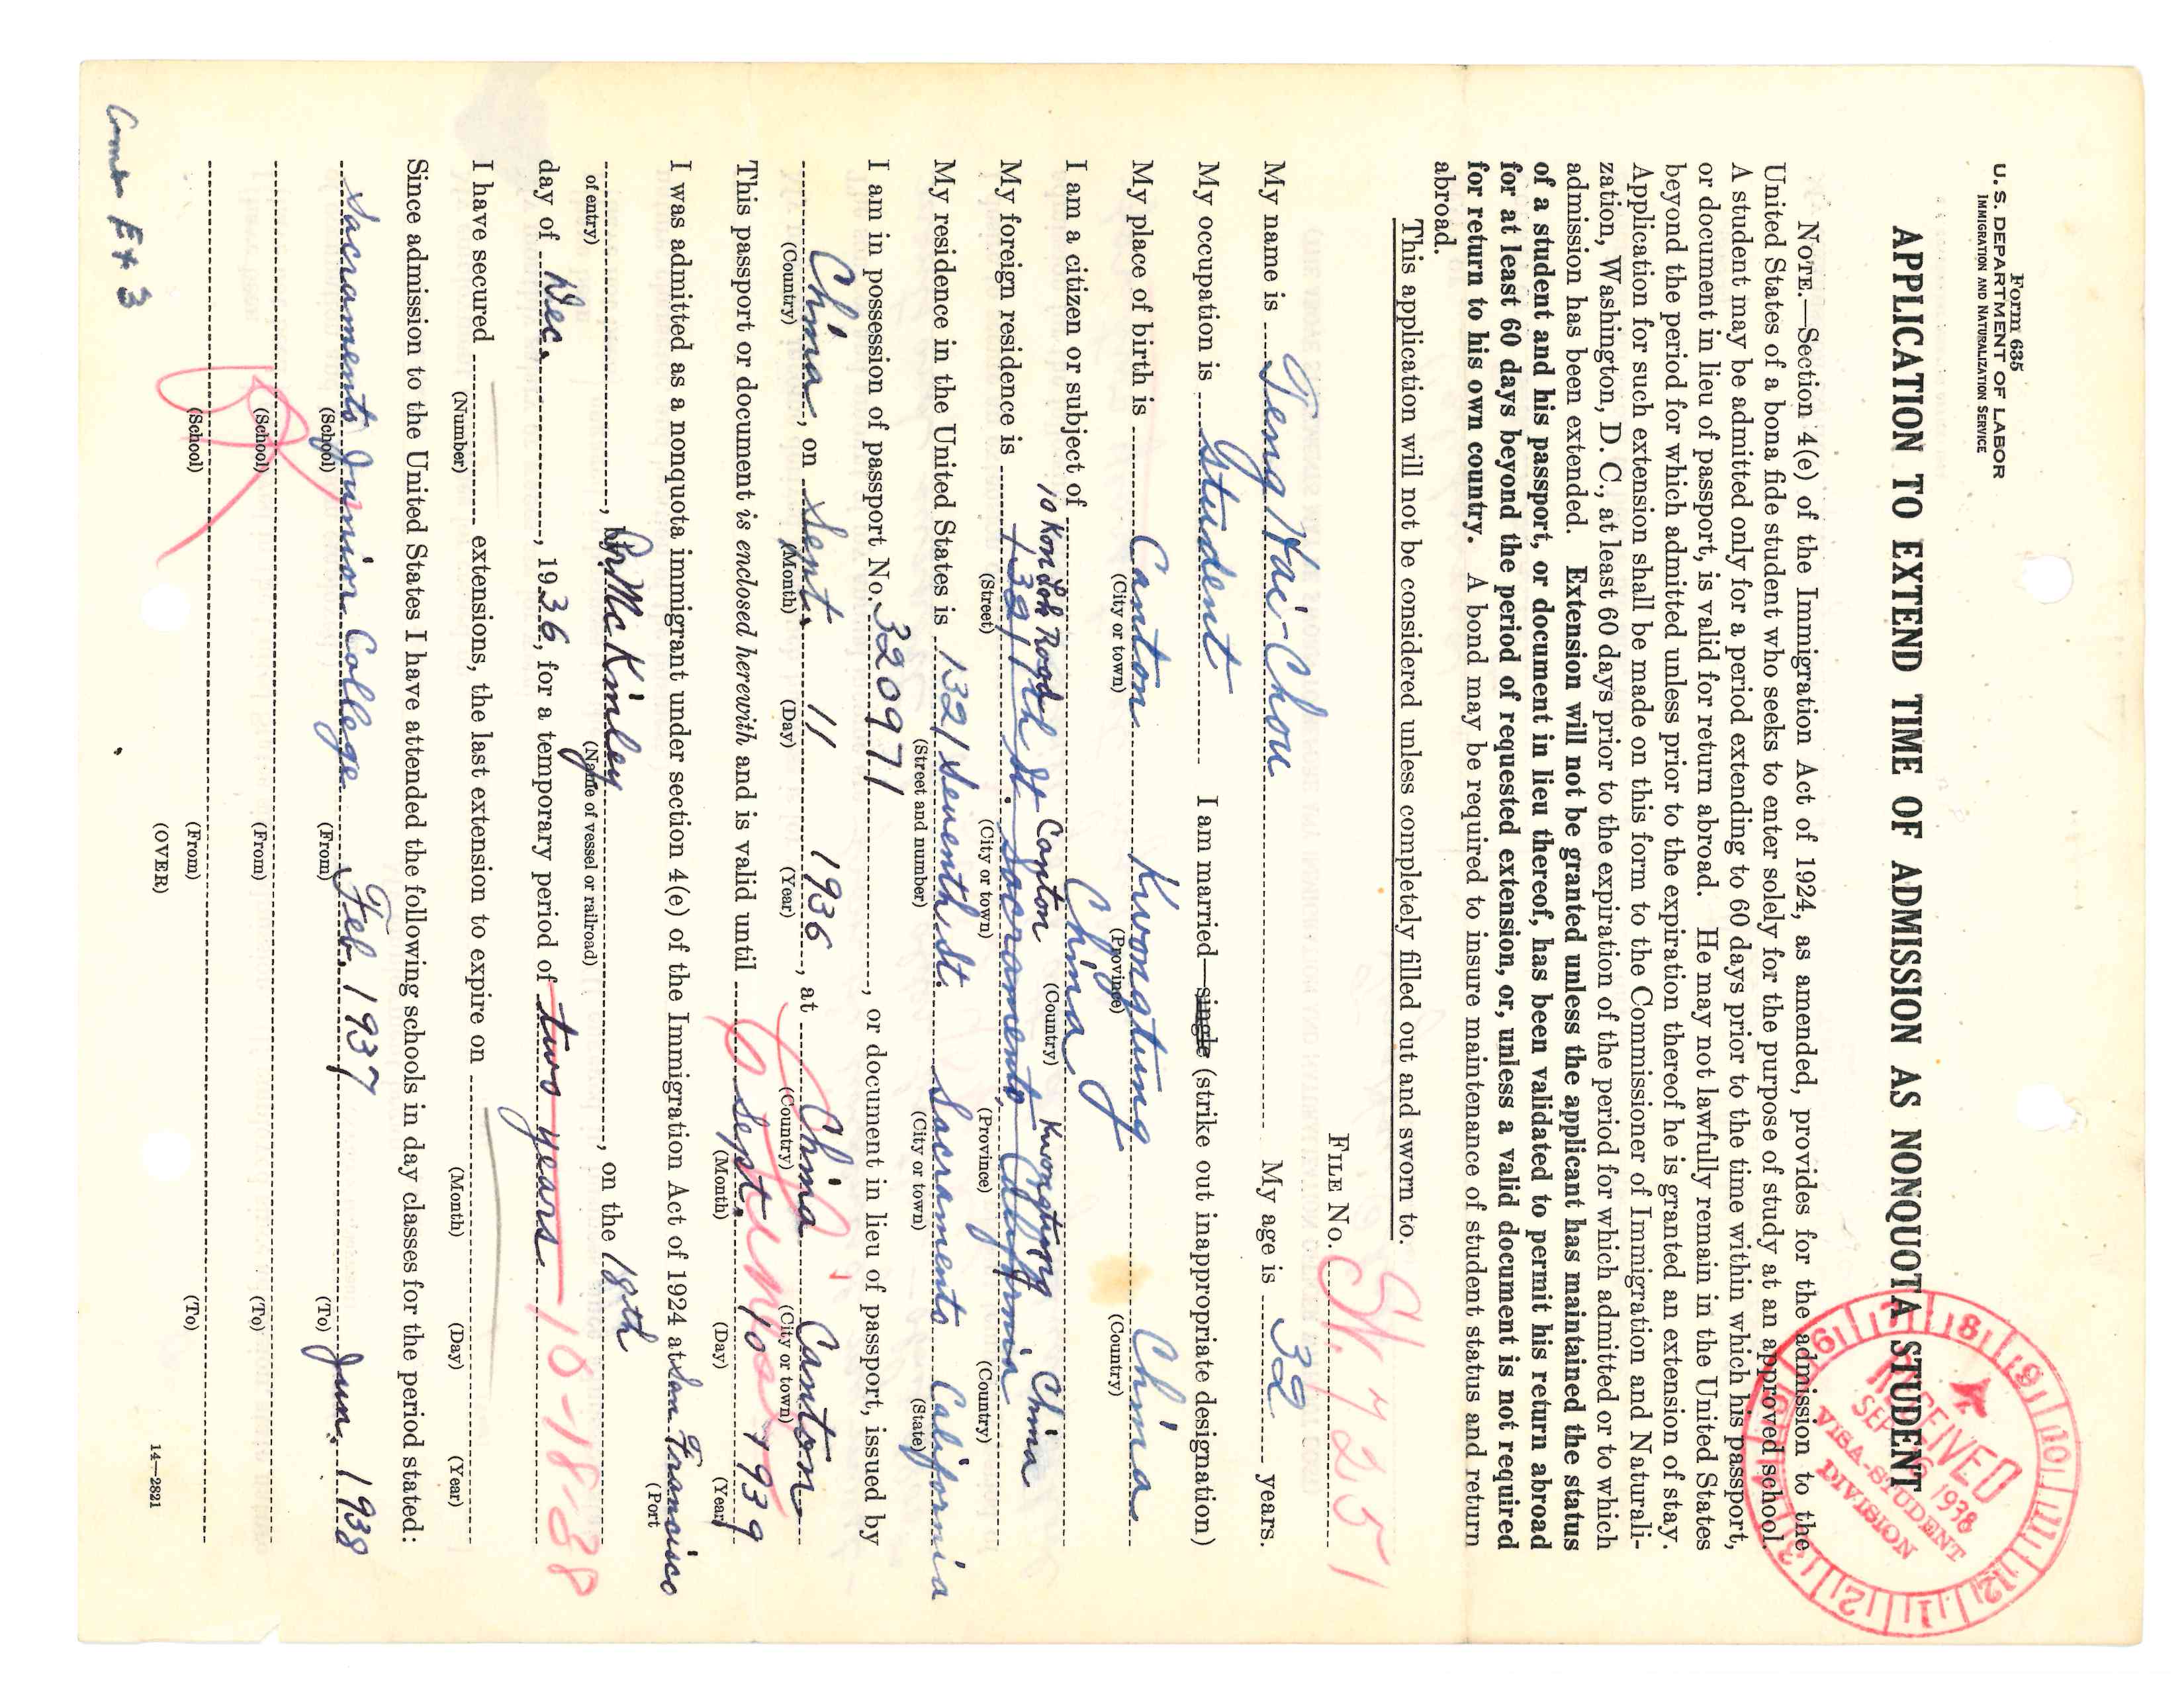 Form 635
U. S. DEPARTMENT OF LABOR
IMMIGRATION AND NATURALIZATION SERVICE
10 11 12 1 2 3 4 5 6 7 8 9
RECEIVED
SEP 16 1938
VISA-STUDENT
DIVISION
APPLICATION TO EXTEND TIME OF ADMISSION AS NONQUOTA STUDENT
NOTE.—Section 4(e) of the Immigration Act of 1924, as amended, provides for the admission to the
United States of a bona fide student who seeks to enter solely for the purpose of study at an approved school.
A student may be admitted only for a period extending to 60 days prior to the time within which his passport,
or document in lieu of passport, is valid for return abroad. He may not lawfully remain in the United States
beyond the period for which admitted unless prior to the expiration thereof he is granted an extension of stay.
Application for such extension shall be made on this form to the Commissioner of Immigration and Naturali-
zation, Washington, D. C., at least 60 days prior to the expiration of the period for which admitted or to which
admission has been extended. Extension will not be granted unless the applicant has maintained the status
of a student and his passport, or document in lieu thereof, has been validated to permit his return abroad
for at least 60 days beyond the period of requested extension, or, unless a valid document is not required
for return to his own country. A bond may be required to insure maintenance of student status and return
abroad.
This application will not be considered unless completely filled out and sworn to.
FILE No. St. 7251
My name is Teng Hai-Chou My age is 32 years.
My occupation is student I am married—single (strike out inappropriate designation)
My place of birth is Canton Kwongtung China
(City or town) (Province) (Country)
I am a citizen or subject of China
(Country)
10 Kon Loh Road Canton Kwongtung China
My foreign residence is 1321 7th St. Sacramento, California
(Street) (City or town) (Province) (Country)
My residence in the United States is 1321 Seventh St. Sacramento California
(Street and number) (City or town) (State)
I am in possession of passport No. 320971, or document in lieu of passport, issued by
China, on Sept. 11 1936, at China Canton
(Country) (Month) (Day) (Year) (Country) (City or town)
This passport or document is enclosed herewith and is valid until Sept. 10 1939
(Month) (Day) (Year)
I was admitted as a nonquota immigrant under section 4(e) of the Immigration Act of 1924 at San Francisco
(Port
, Pr. McKinley, on the 18th
of entry) (Name of vessel or railroad)
day of Dec., 1936, for a temporary period of two years 10-18-38
I have secured extensions, the last extension to expire on
(Number) (Month) (Day) (Year)
Since admission to the United States I have attended the following schools in day classes for the period stated:
Sacramento Junior College Feb. 1937 Jun. 1938
(School) (From) (To)
OK
(School) (From) (To)
(School) (From) (To)
(OVER)
14—2821
Ext 3